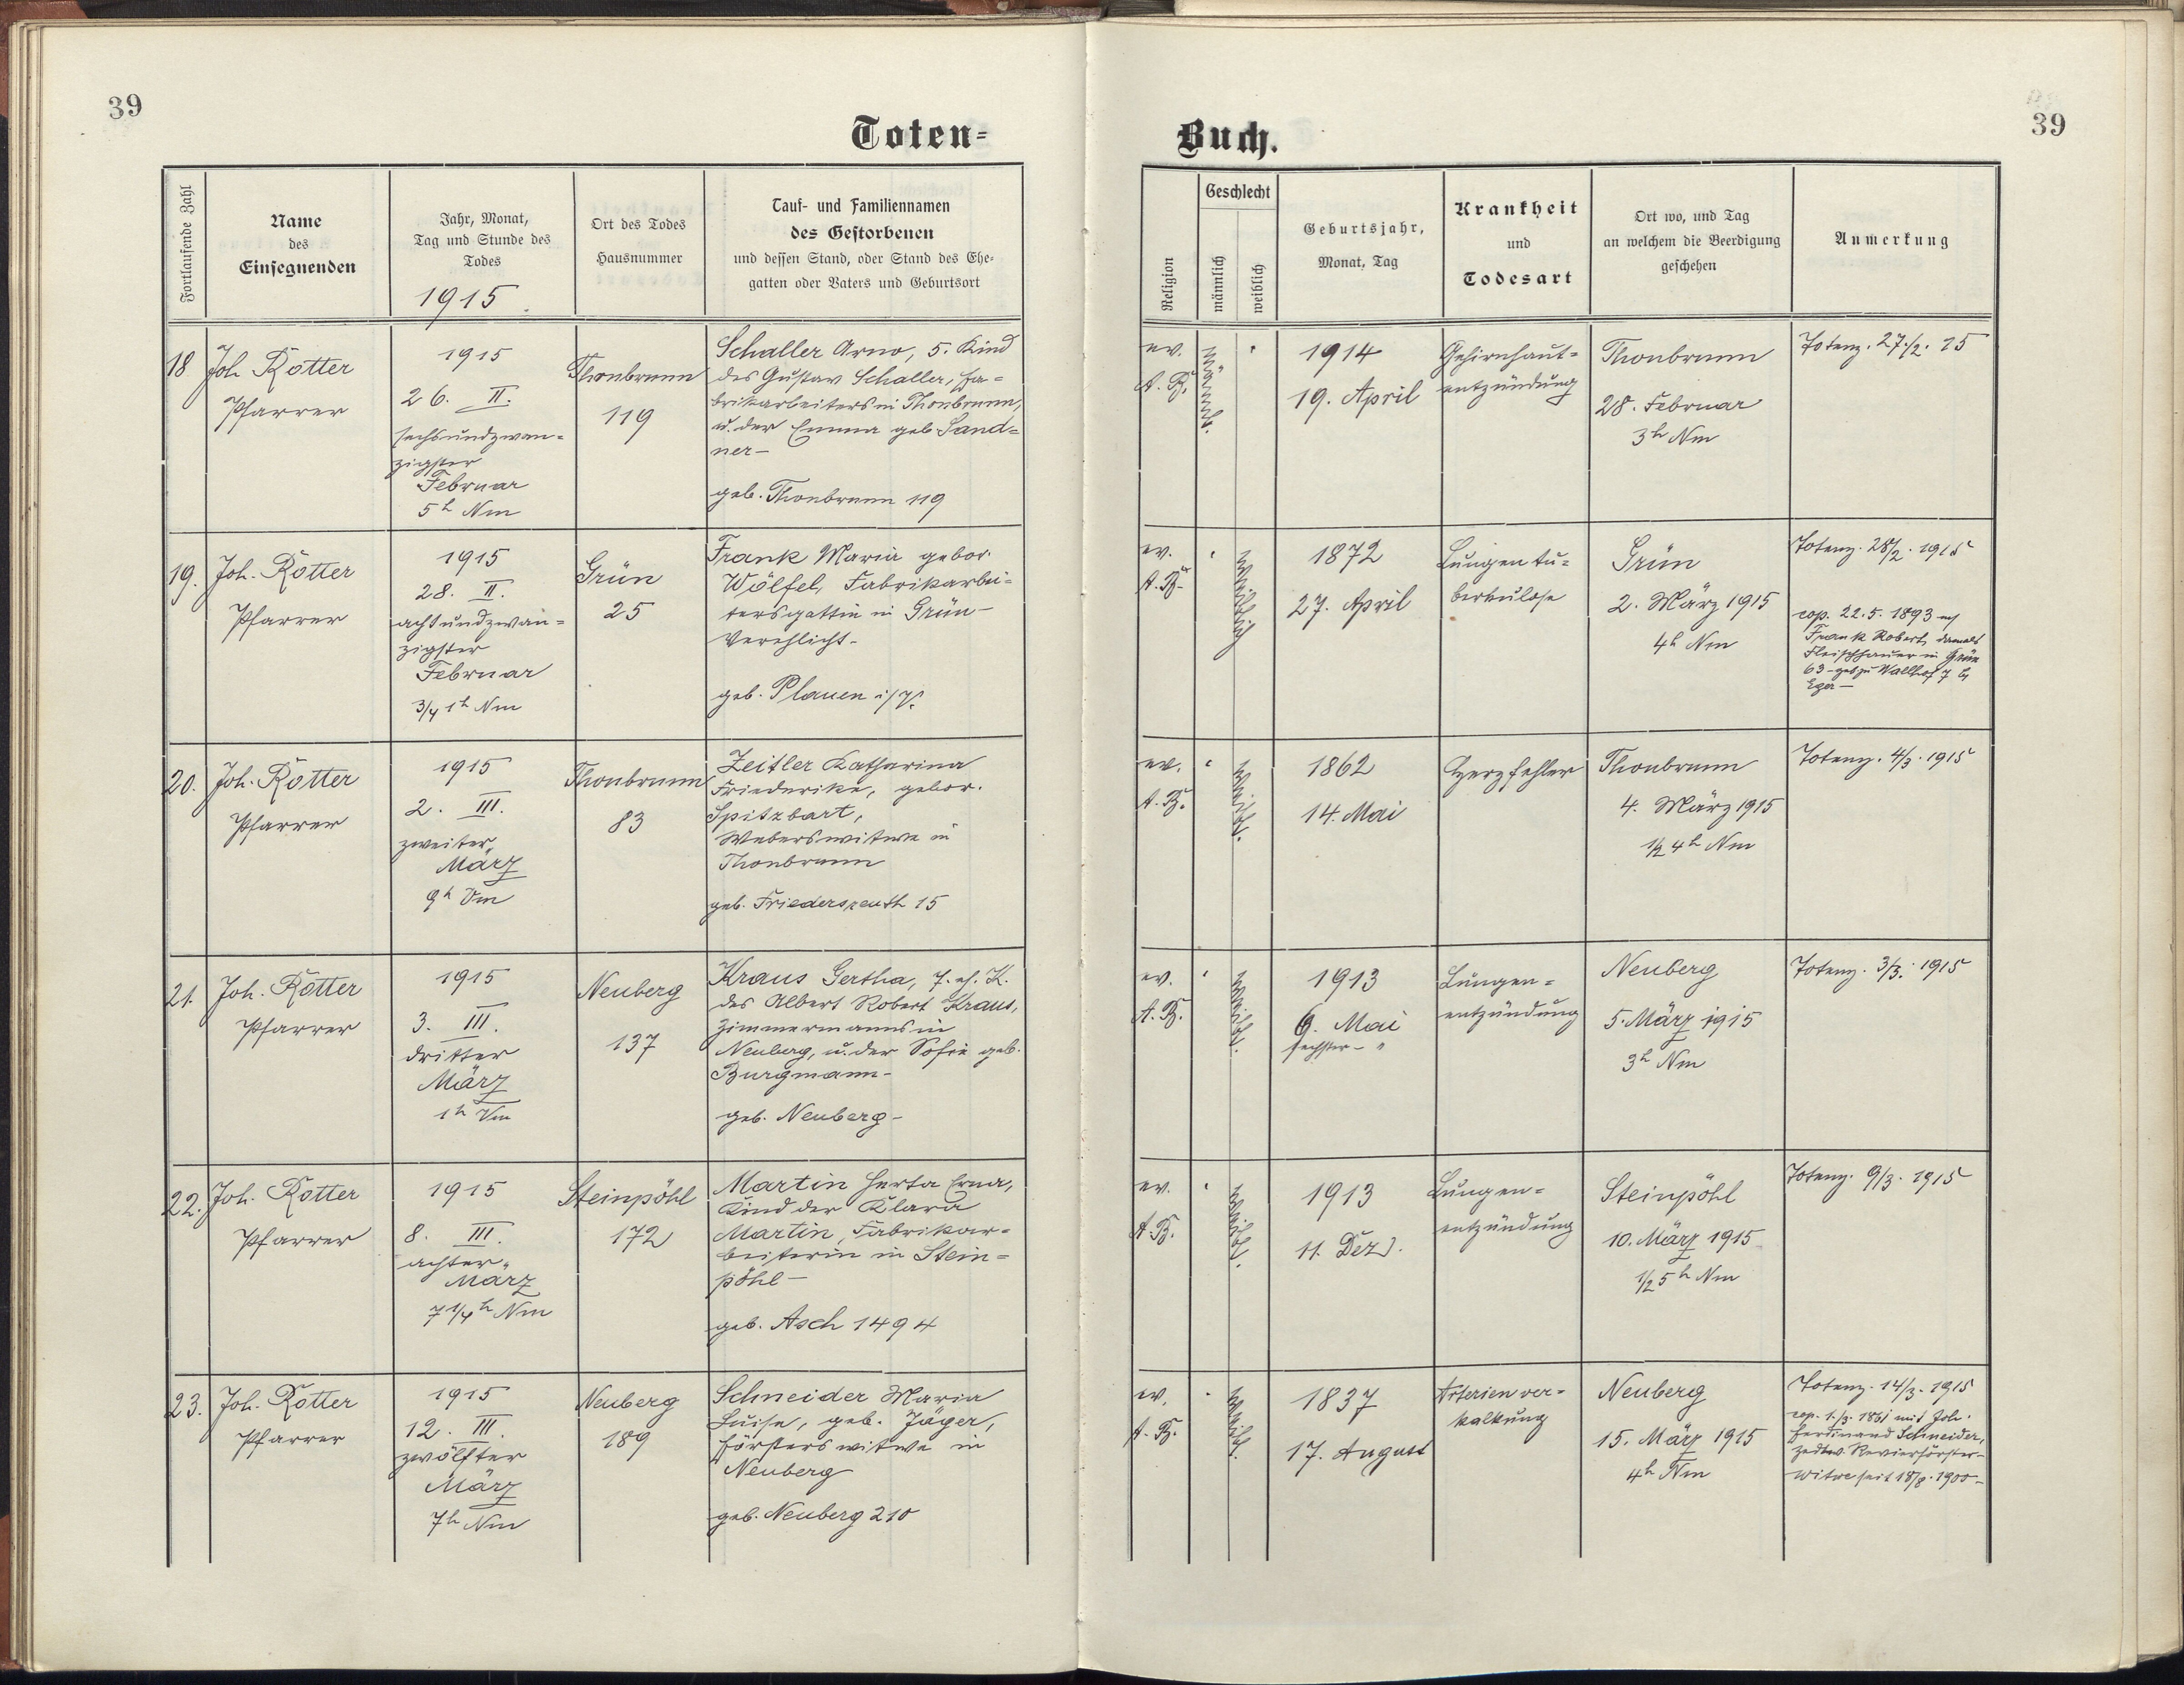 39
Toten-
Fortlaufende Zahl
Name
des
Einsegnenden
Jahr, Monat,
Tag und Stunde des
Todes
1915.
Ort des Todes
Hausnummer
Tauf- und Familiennamen
des Gestorbenen
und dessen Stand, oder Stand des Ehe-
gatten oder Vaters und Geburtsort
18
Joh. Rotter
Pfarrer
1915
26. II.
sechsundzwan-
zigster
Februar
5h Nm
Thonbrunn
119
Schaller Arno, 5. Kind
des Gustav Schaller, Fa-
brikarbeiters in Thonbrunn,
u. der Emma geb. Sand-
ner-
geb. Thonbrunn 119
19.
Joh. Rotter
Pfarrer
1915
28. II.
achtundzwan-
zigster
Februar
3/4 1h Nm
Grün
25
Frank Maria gebor.
Wölfel, Fabrikarbei-
tersgattin in Grün-
Verehlicht-
geb. Plauen i/V.
20.
Joh. Rotter
Pfarrer
1915
2. III.
zweiter
März
9h Vm
Thonbrunn
83
Zeitler Katharina
Friederike, gebor.
Spitzbart,
Weberswitwe in
Thonbrunn
geb. Friedersreuth 15
21.
Joh. Rotter
Pfarrer
1915
3. III.
dritter
März
1h Vm
Neuberg
137
Kraus Gertha, 7. eh. K.
des Albert Robert Kraus,
Zimmermanns in
Neuberg, u. der Sofie geb.
Burgmann-
geb. Neuberg-
22.
Joh. Rotter
Pfarrer
1915
8. III.
achter
März
7 1/4h Nm
Steinpöhl
172
Martin Herta Erna,
Kind der Klara
Martin, Fabrikar-
beiterin in Stein-
pöhl-
geb. Asch 1494
23.
Joh. Rotter
Pfarrer
1915
12. III.
zwölfter
März
7h Nm
Neuberg
189
Schneider Maria
Luise, geb. Jäger,
Försterswitwe in
Neuberg
geb. Neuberg 210
Buch.
39
Religion
Geschlecht
männlich
weiblich
Geburtsjahr,
Monat, Tag
Krankheit
und
Todesart
Ort wo, und Tag
an welchem die Beerdigung
geschehen
Anmerkung
ev.
A. B.
männl.
1914
19. April
Gehirnhaut-
entzündung
Thonbrunn
28. Februar
3h Nm
Totenz. 27/2. 15
ev.
A. B.
weiblich
1872
27. April
Lungentu-
berkulose
Grün
2. März 1915
4h Nm
Totenz. 28/2. 1915
cop. 22.5.1893 m/
Frank Robert, damals
Fleischhauer in Grün
63- geb. zu Wallhof 7 b/
Eger-
ev.
A. B.
weibl.
1862
14. Mai
Herzfehler
Thonbrunn
4. März 1915
1/2 4h Nm
Totenz. 4/3. 1915
ev.
A. B.
weibl.
1913
6. Mai
sechster - "
Lungen-
entzündung
Neuberg
5. März 1915
3h Nm
Totenz. 3/3. 1915
ev.
A. B.
weibl.
1913
11. Dez.
Lungen-
entzündung
Steinpöhl
10. März 1915
1/2 5h Nm
Totenz. 9/3. 1915
ev.
A. B.
weibl.
1837
17. August
Arterienver-
kalkung
Neuberg
15. März 1915
4h Nm
Totenz. 14/3. 1915
cop. 1./3. 1861 mit Joh.
Ferdinand Schneider,
Zedtw. Revierförster-
Witwe seit 18/8. 1900-